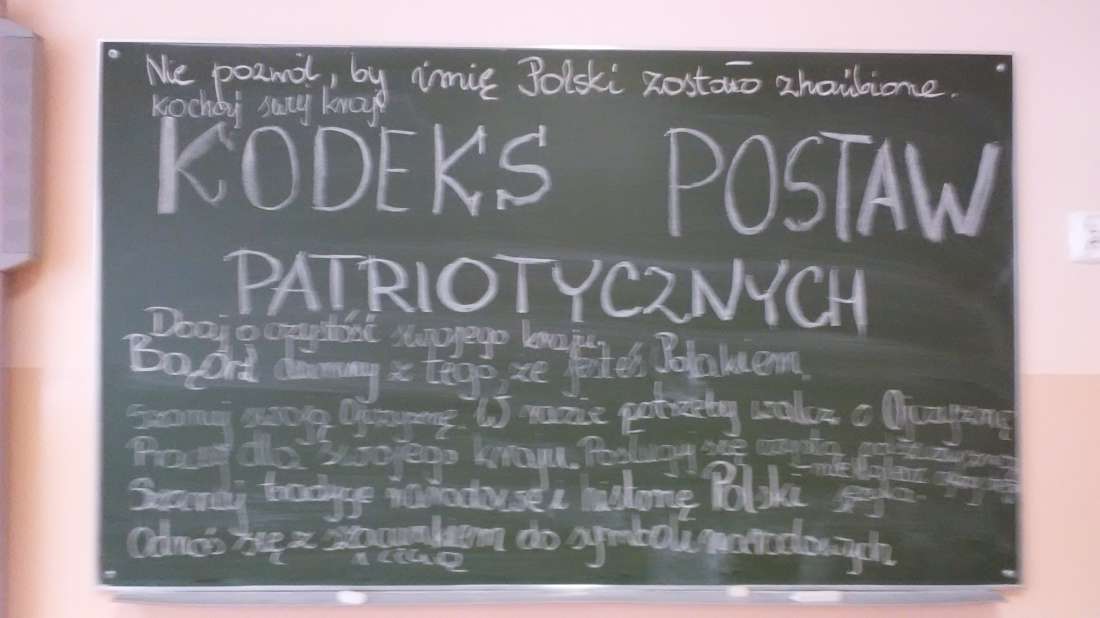 Nie pozwól, by imię Polski zostało zhańbione.
kochaj swój kraj
KODEKS POSTAW
PATRIOTYCZNYCH
Dbaj o czystość swojego kraju.
Bądź dumny z tego, że jesteś Polakiem.
Szanuj swoją Ojczyznę. W razie potrzeby walcz o Ojczyznę
Pracuj dla swojego kraju. Posługuj się
Szanuj tradycje narodowe i historię Polski
Odnoś się z szacunkiem do symboli narodowych